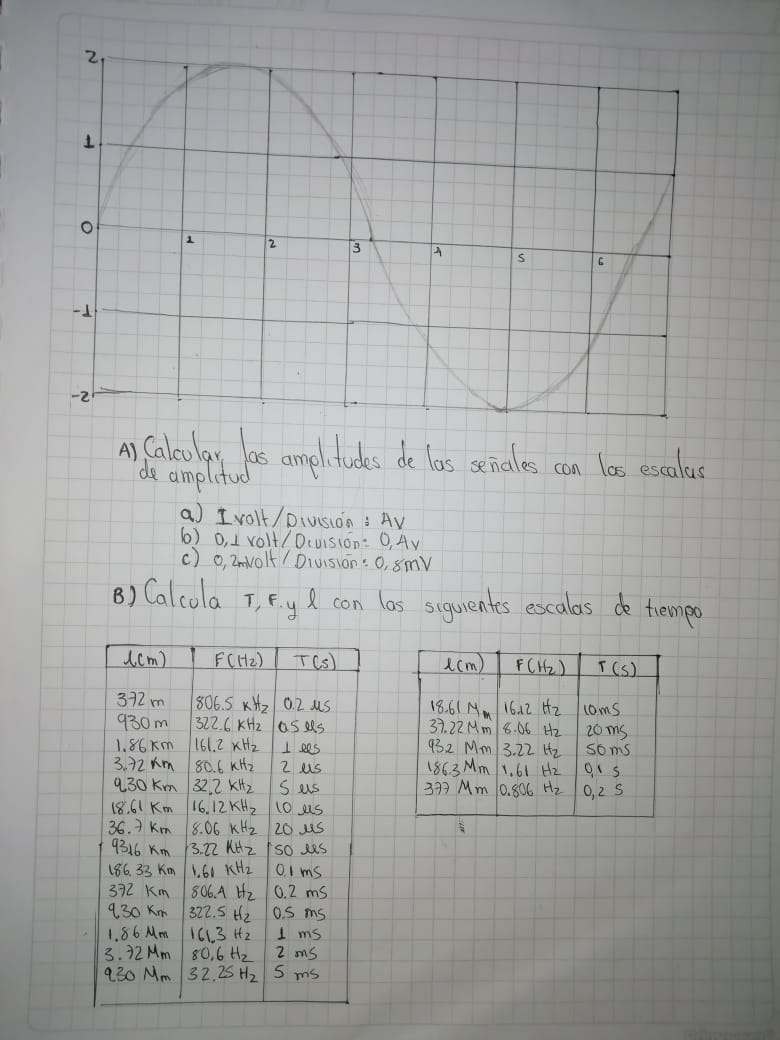 2
1
0
1 2 3 4 5 6
-1
-2
A) Calcular las amplitudes de las señales con las escalas
de amplitud
a) 1 volt/División: 4v
b) 0,1 volt/División: 0,4v
c) 0,2mvolt/División: 0,8mV
B) Calcula T, F, y l con las siguientes escalas de tiempo
l(m) F(Hz) T(s)
372 m 806.5 KHz 0.2 us
930 m 322.6 KHz 0.5 us
1.86 Km 161.2 KHz 1 us
3.72 Km 80.6 KHz 2 us
9.30 Km 32.2 KHz 5 us
18.61 Km 16.12 KHz 10 us
36.7 Km 8.06 KHz 20 us
93.16 Km 3.22 KHz 50 us
186.33 Km 1.61 KHz 0.1 ms
372 Km 806.4 Hz 0.2 ms
930 Km 322.5 Hz 0.5 ms
1.86 Mm 161.3 Hz 1 ms
3.72 Mm 80,6 Hz 2 ms
930 Mm 32.25 Hz 5 ms
l(m) F(Hz) T(s)
18.61 Mm 16.12 Hz 10ms
37.22 Mm 8.06 Hz 20 ms
93.2 Mm 3.22 Hz 50 ms
186.3 Mm 1.61 Hz 0,1 s
377 Mm 0.806 Hz 0,2 s